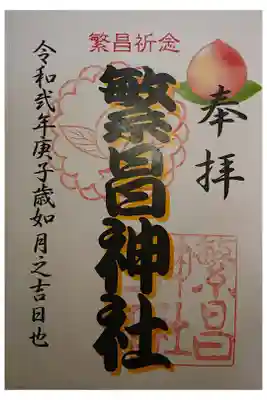 奉拝
繁昌祈念
繁昌神社
繁昌神社
令和弐年庚子歳如月之吉日也